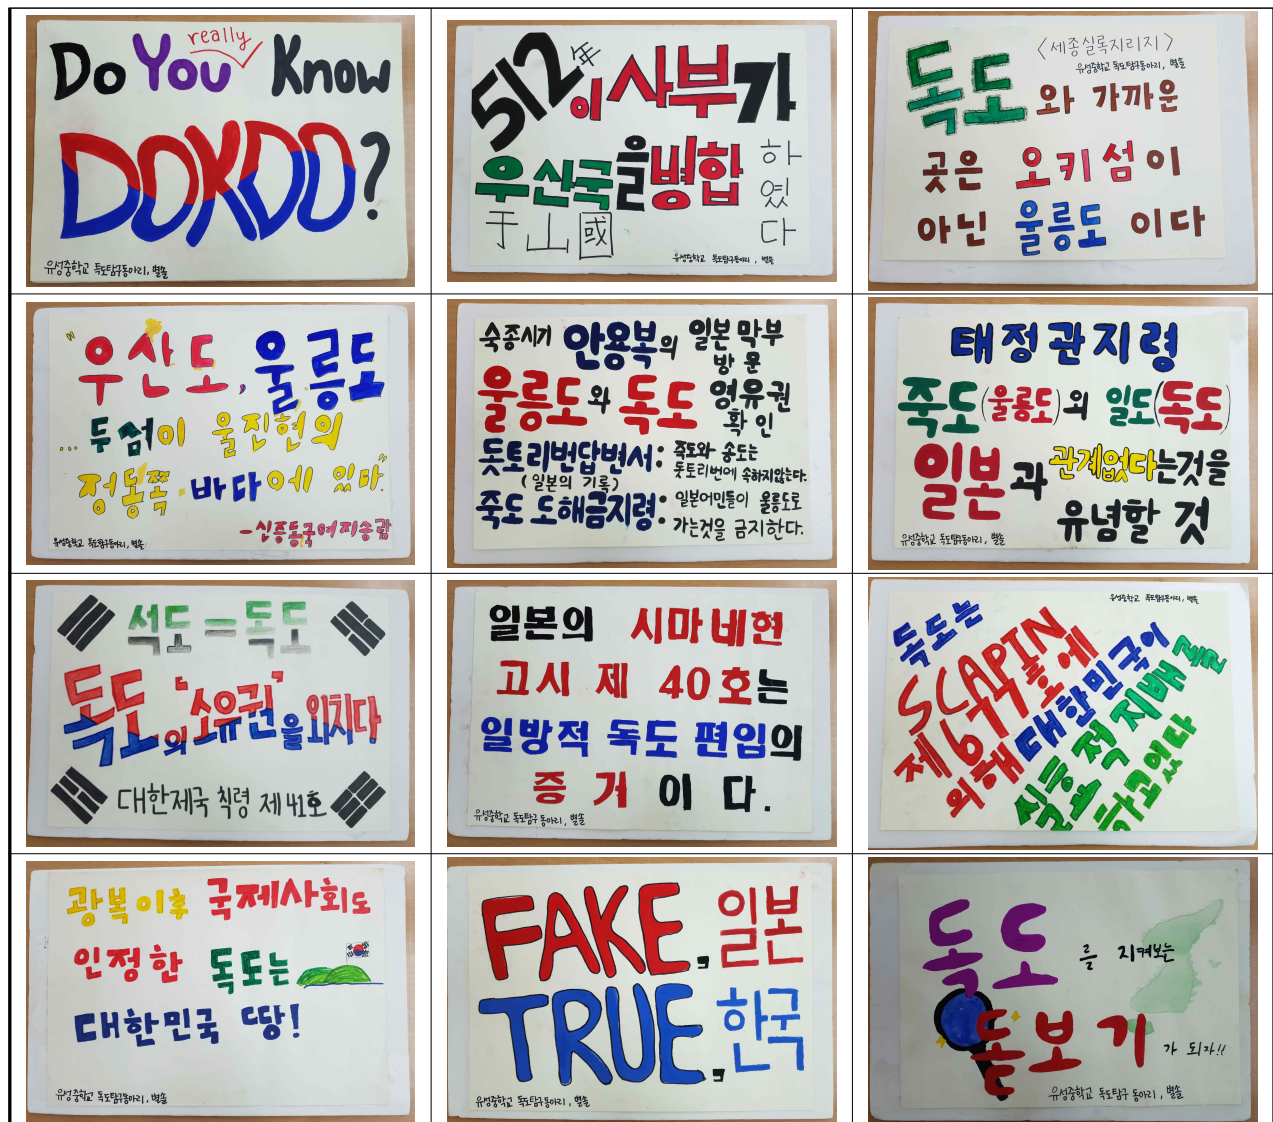 Do You really Know
DOKDO?
유성중학교 독도탐구동아리, 별솔
512年 이사부가
우산국을 병합 하였다
于山國
유성중학교 독도탐구동아리, 별솔
<세종실록지리지>
유성중학교 독도탐구동아리, 별솔
독도와 가까운
곳은 오키섬이
아닌 울릉도 이다
"우산도, 울릉도
...두섬이 울진현의
정동쪽 바다에 있다."
-신증동국여지승람
유성중학교 독도탐구동아리, 별솔
숙종시기 안용복의 일본 막부 방문
울릉도와 독도 영유권 확인
돗토리번답변서: 죽도와 송도는
(일본의 기록) 돗토리번에 속하지않는다.
죽도 도해금지령: 일본어민들이 울릉도로
가는것을 금지한다.
태정관지령
죽도(울릉도)외 일도(독도)
일본과 관계없다는것을
유념할 것
유성중학교 독도탐구동아리, 별솔
석도=독도
독도의 '소유권'을 외치다
대한제국 칙령 제41호
일본의 시마네현
고시 제 40호는
일방적 독도 편입의
증거이다.
유성중학교 독도탐구동아리, 별솔
유성중학교 독도탐구동아리, 별솔
독도는
SCAPIN
제677호에
의해 대한민국이
실효적 지배를
하고있다
광복이후 국제사회도
인정한 독도는
대한민국 땅!
유성중학교 독도탐구동아리, 별솔
FAKE, 일본
TRUE, 한국
유성중학교 독도탐구동아리, 별솔
독도를 지켜보는
돋보기가 되자!!
유성중학교 독도탐구동아리, 별솔